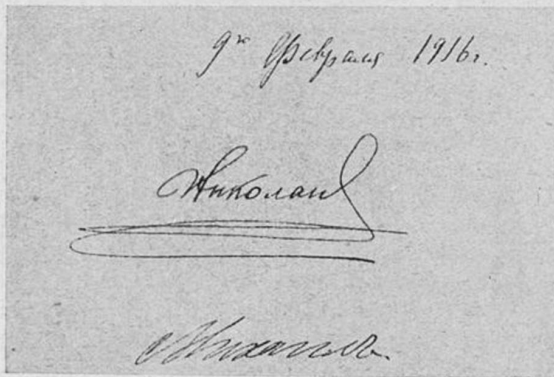 9го Февраля 1916г.
Николай
Михаилъ.